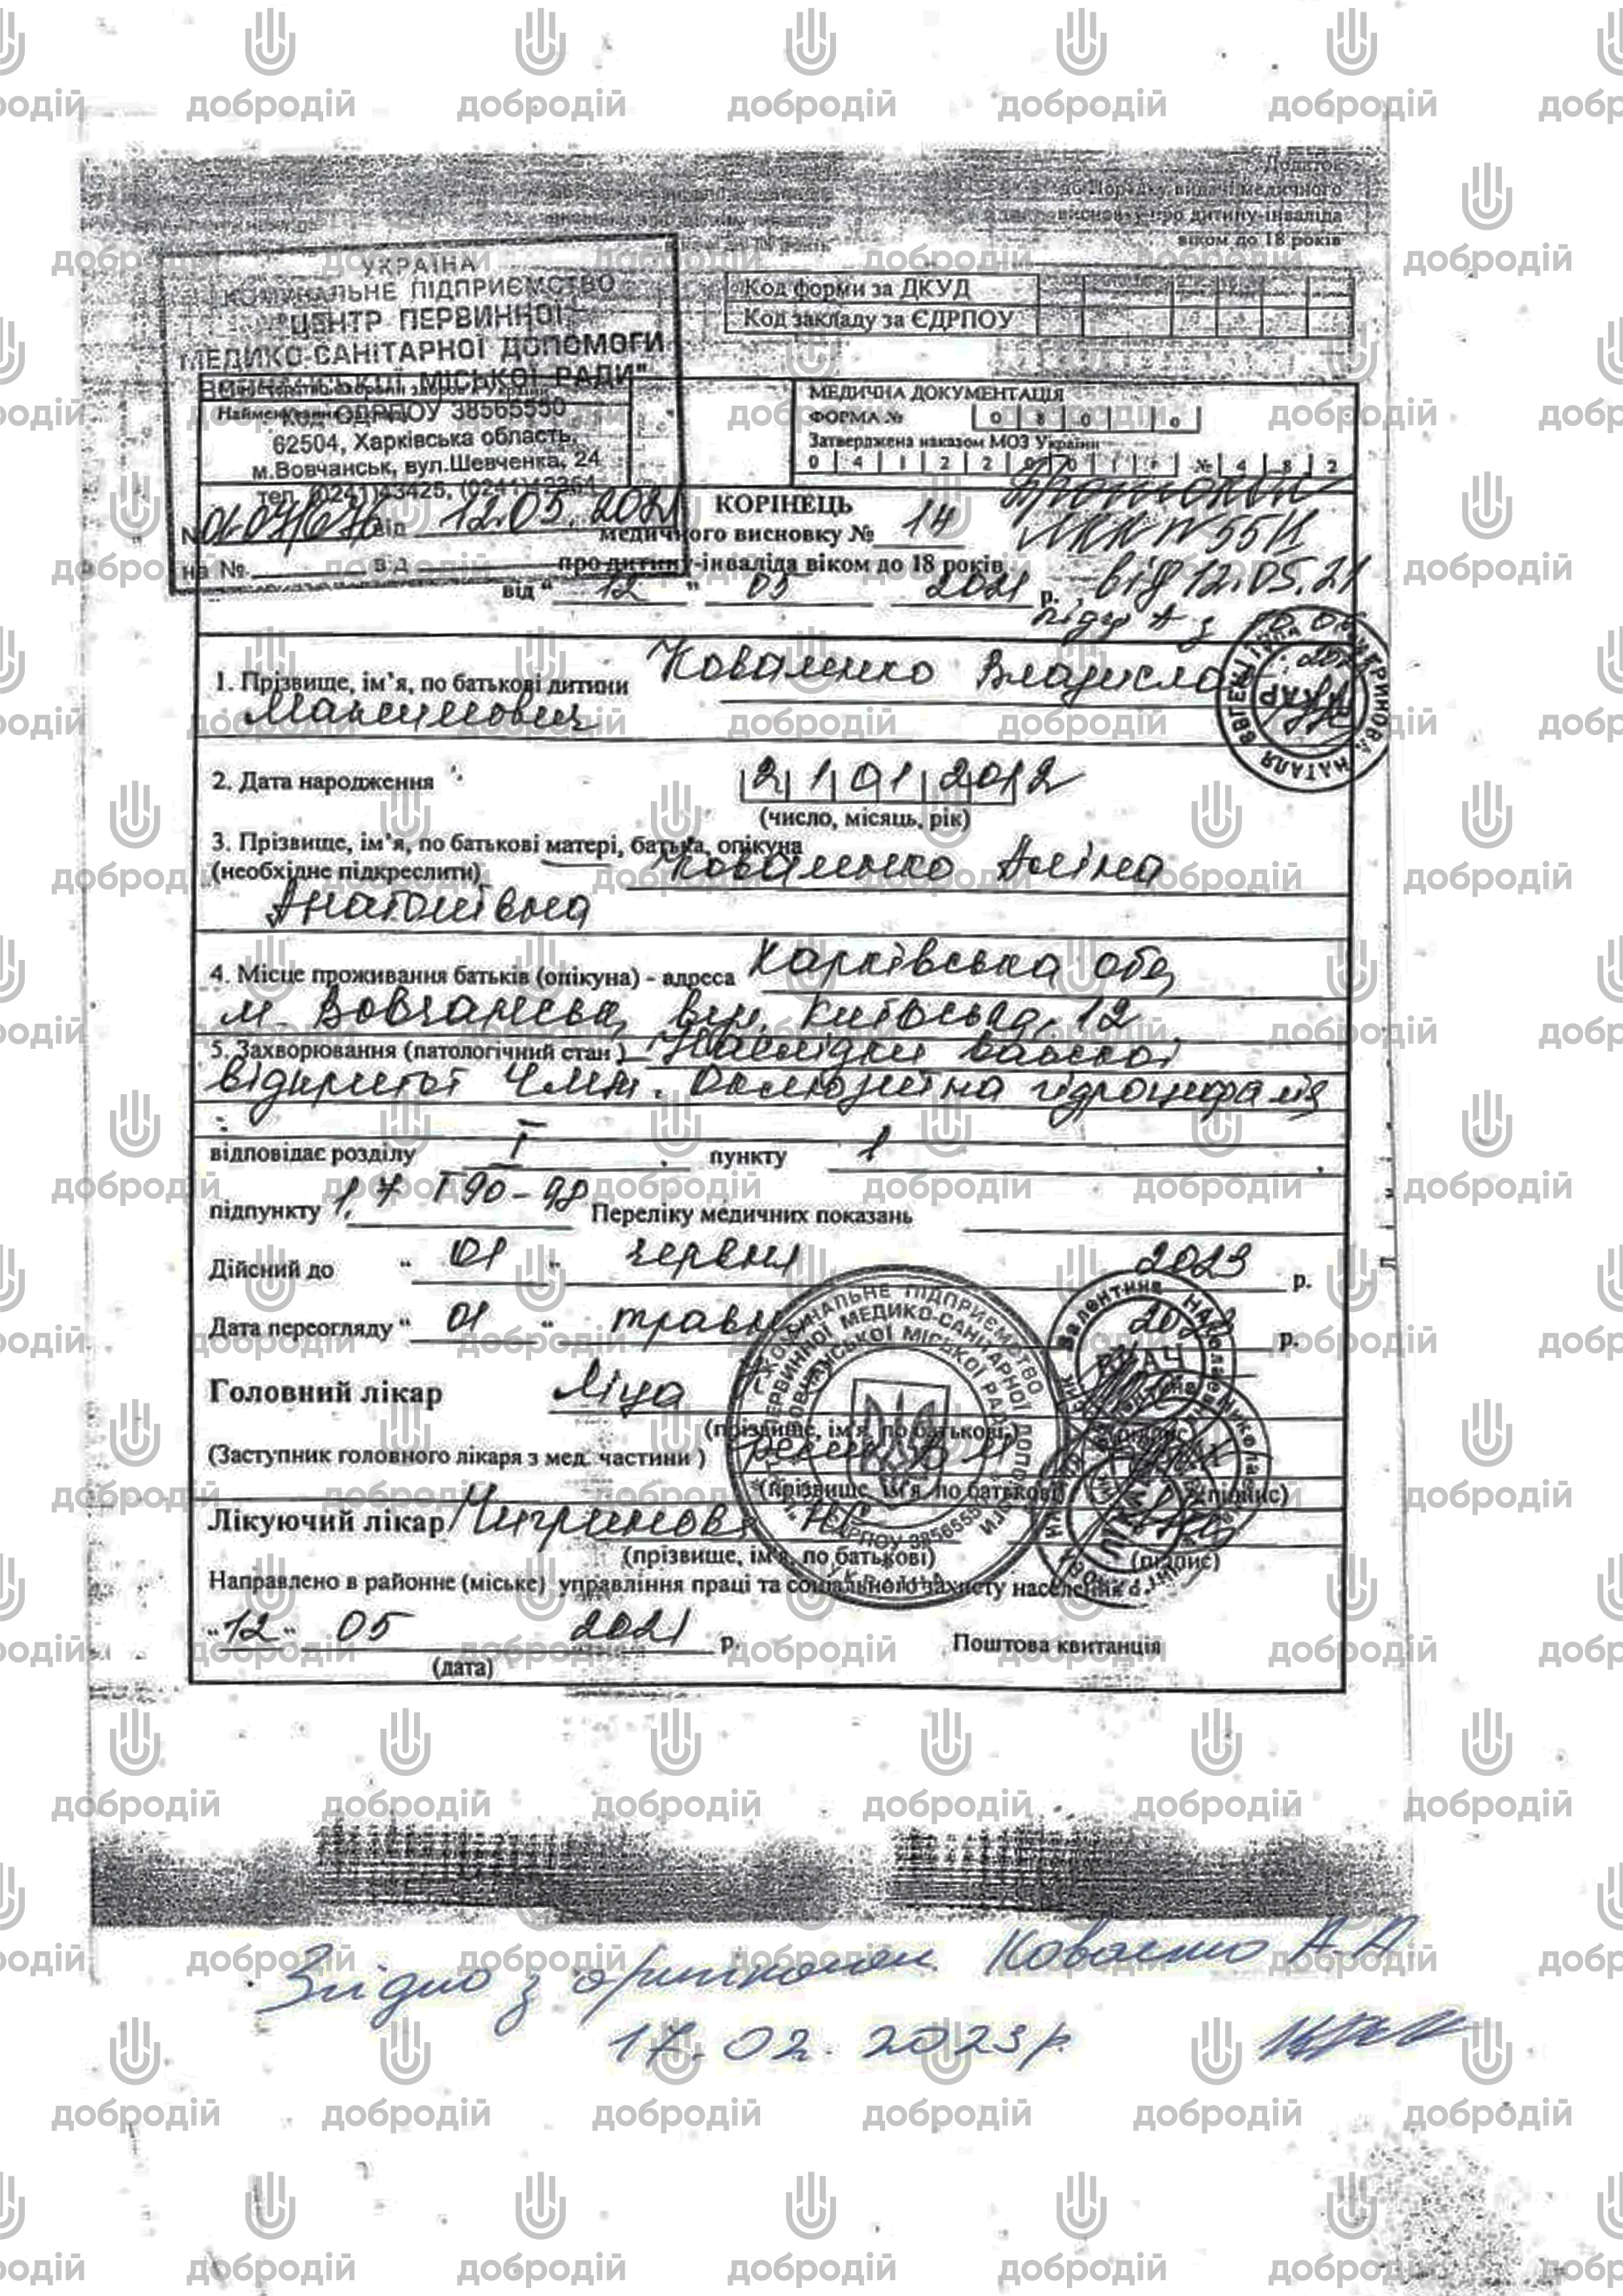 Додаток
до Порядку видачі медичного
висновку про дитину-інваліда
віком до 18 років
УКРАЇНА
КОМУНАЛЬНЕ ПІДПРИЄМСТВО
"ЦЕНТР ПЕРВИННОЇ
МЕДИКО-САНІТАРНОЇ ДОПОМОГИ
МІСЬКОЇ РАДИ"
Код ЄДРПОУ 38565550
62504, Харківська область,
м.Вовчанськ, вул.Шевченка, 24
тел. (0241)43425,
№ 01-07/676 від 12.05.2021
на № від
Код форми за ДКУД
Код закладу за ЄДРПОУ
Міністерство охорони здоров'я України
Найменування
МЕДИЧНА ДОКУМЕНТАЦІЯ
ФОРМА № 0 8 0
Затверджена наказом МОЗ України
0 4 1 2 2 0 0 1 № 4 8 2
КОРІНЕЦЬ
медичного висновку № 14
про дитину-інваліда віком до 18 років
від " 12 " 05 2021 р.
Протокол
ЛКК № 551
від 12.05.21
підгр А з
1. Прізвище, ім'я, по батькові дитини Коваленко Владислав
Максимович
2. Дата народження 21 01 2012
(число, місяць, рік)
3. Прізвище, ім'я, по батькові матері, батька, опікуна
(необхідне підкреслити) Коваленко Аліна
Анатоліївна
4. Місце проживання батьків (опікуна) - адреса Харківська обл,
м. Вовчанськ, вул. Київська, 12
5. Захворювання (патологічний стан) Наслідки важкої
відкритої ЧМТ. Оклюзійна гідроцефалія
відповідає розділу I пункту 1
підпункту 1.7 Т90-98 Переліку медичних показань
Дійсний до " 01 " червня 2023 р.
Дата переогляду " 01 " травня р.
Головний лікар
(прізвище, ім'я, по батькові)
(підпис)
(Заступник головного лікаря з мед. частини)
(прізвище, ім'я, по батькові)
(підпис)
Лікуючий лікар Чигринова НЄ
(прізвище, ім'я, по батькові)
(підпис)
Направлено в районне (міське) управління праці та соціального захисту населення
"12" 05 2021 р.
Поштова квитанція
(дата)
Згідно з оригіналом Коваленко А.А
17.02.2023 р.
добродій